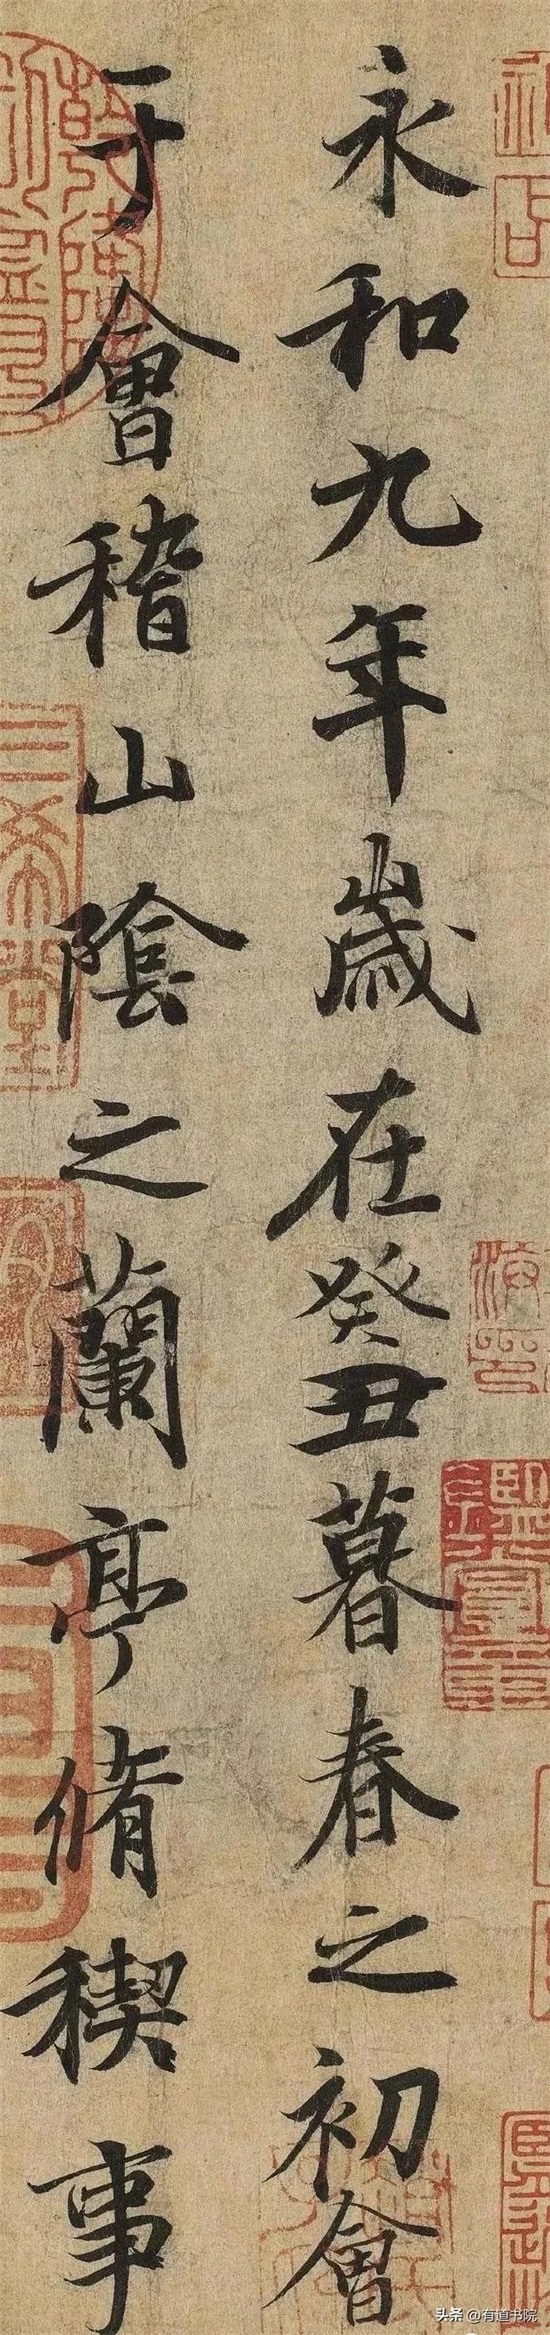 永和九年歲在癸丑暮春之初會
于會稽山陰之蘭亭脩稧事
三希堂
頭条 @有道书院